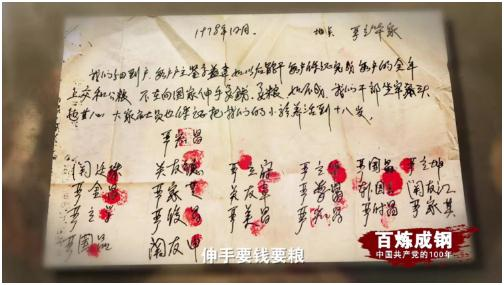 1978年12月 地点 严立华家
我们分田到户，每户户主签字盖章，如以后能干，每户保证完成每户的全年
上交和公粮，不在向国家伸手要钱要粮，如不成，我们干部坐牢杀头
也甘心，大家社员也保证把我们的小孩养活到十八岁。
严宏昌
关廷珠 关友德 严立富 严立华 严国昌 严立坤
严金昌 严家芝 关友章 严学昌 韩国云 关友江
严立学 严俊昌 严美昌 严付昌 严家其
严国品 关友申
伸手要钱要粮
百炼成钢
中国共产党的100年